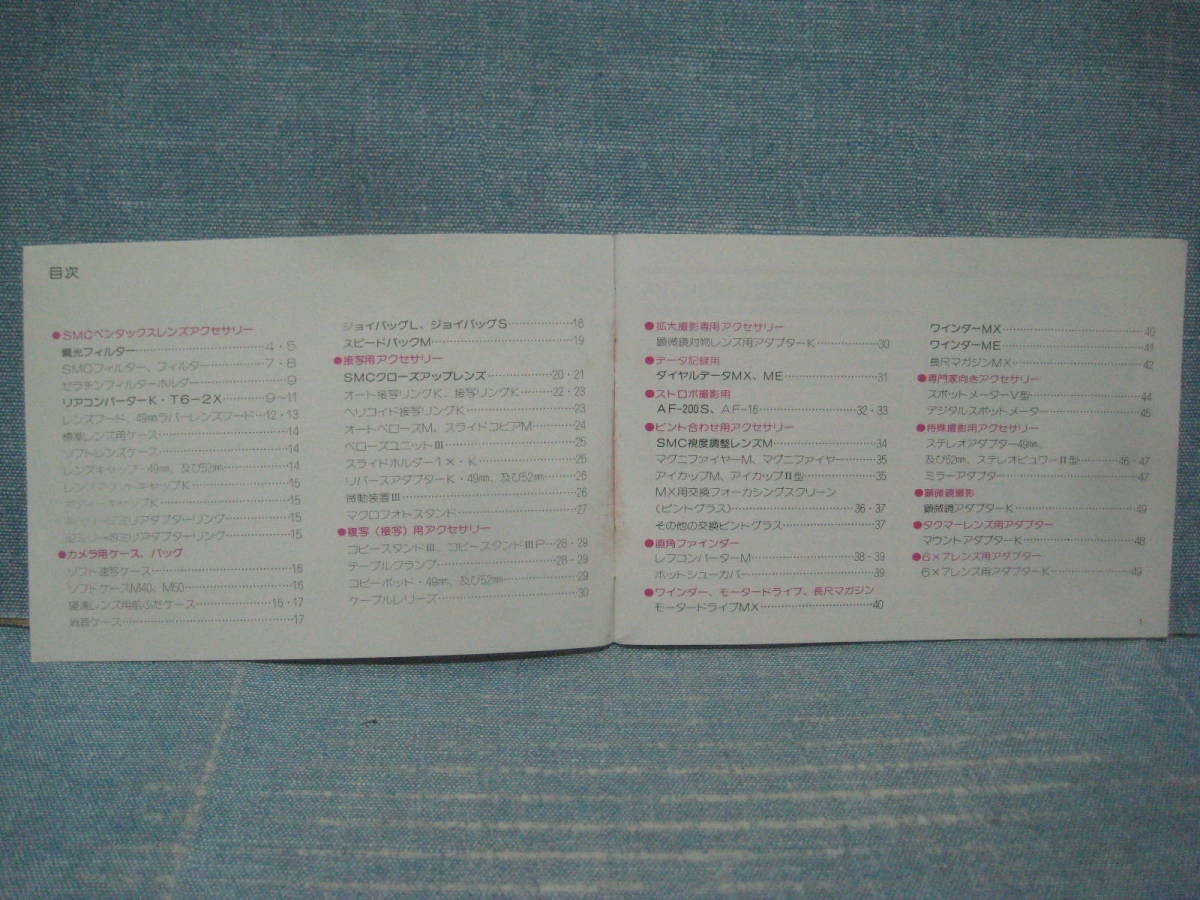 目次
●SMCペンタックスレンズアクセサリー
偏光フィルター……4・5
SMCフィルター、フィルター……7・8
ゼラチンフィルターホルダー……9
リアコンバーターK・T6-2X……9〜11
レンズフード、49㎜ラバーレンズフード……12・13
標準レンズ用ケース……14
ソフトレンズケース……14
レンズキャップ・49㎜、及び52㎜……14
レンズマウントキャップK……15
ボディマウントキャップK……15
リアダプターリング……15
リアダプターリング……15
●カメラ用ケース、バッグ
ソフト速写ケース……16
ソフトケースM40、M50……16
望遠レンズ用前ぶたケース……16・17
ケース……17
ジョイバッグL、ジョイバッグS……18
スピードパックM……19
●接写用アクセサリー
SMCクローズアップレンズ……20・21
オート接写リングK、接写リングK……22・23
ヘリコイド接写リングK……23
オートベローズM、スライドコピアM……24
ベローズユニットⅢ……25
スライドホルダー1×・K……25
リバースアダプターK・49㎜、及び52㎜……26
微動装置Ⅲ……26
マクロフォトスタンド……27
●複写（接写）用アクセサリー
コピースタンドⅢ、コピースタンドⅢP……28・29
テーブルクランプ……28・29
コピーポッド・49㎜、及び52㎜……29
ケーブルレリーズ……30
●拡大撮影専用アクセサリー
顕微鏡対物レンズ用アダプターK……30
●データ記録用
ダイヤルデータMX、ME……31
●ストロボ撮影用
AF-200S、AF-16……32・33
●ピント合わせ用アクセサリー
SMC視度調整レンズM……34
マグニファイヤーM、マグニファイヤー……35
アイカップM、アイカップⅡ型……35
MX用交換フォーカシングスクリーン
（ピントグラス）……36・37
その他の交換ピントグラス……37
●直角ファインダー
レフコンバーターM……38・39
ホットシューカバー……39
●ワインダー、モータードライブ、長尺マガジン
モータードライブMX……40
ワインダーMX……40
ワインダーME……41
長尺マガジンMX……42
●専門家向きアクセサリー
スポットメーターV型……44
デジタルスポットメータ……45
●特殊撮影用アクセサリー
ステレオアダプター49㎜、
及び52㎜、ステレオビュワーⅡ型……46・47
ミラーアダプタ……47
●顕微鏡撮影
顕微鏡アダプターK……49
●タクマーレンズ用アダプター
マウントアダプターK……48
●6×7レンズ用アダプター
6×7レンズ用アダプターK……49
1